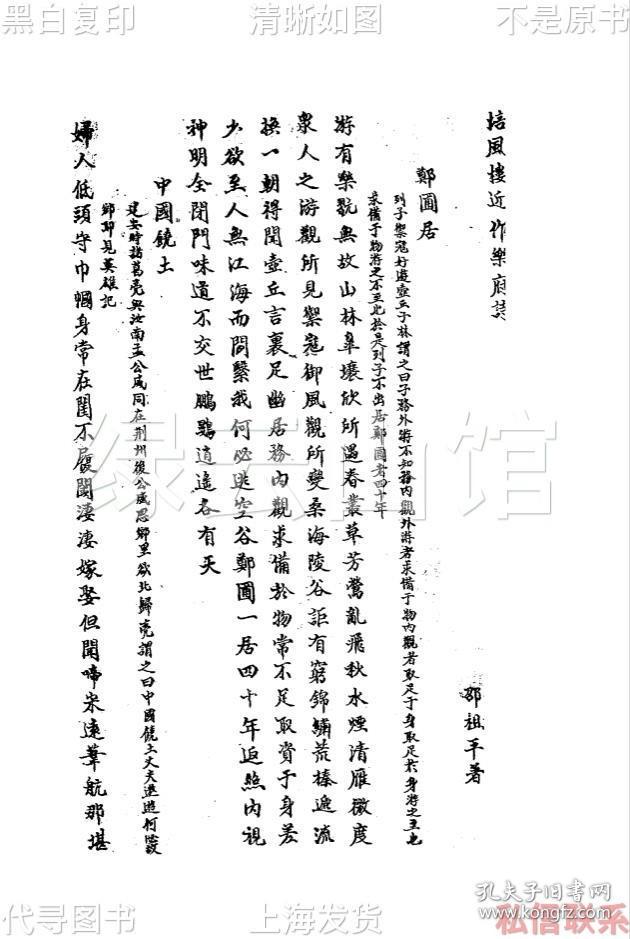 黑白复印
清晰如图
不是原书
培風樓近作樂府詩
邵祖平著
鄭圃居
列子禦寇好游壺丘子林謂之曰子務外游不知務內觀外游者求備于物內觀者取足于身取足於身游之至也
求備于物游之不至也於是列子不出居鄭圃者四十年
游有樂貌無故山林皋壤欣所遇春叢草芳鶯亂飛秋水煙清雁微度
衆人之游觀所見禦寇御風觀所變桑海陵谷詎有窮錦繡荒榛遞流
換一朝得聞壺丘言裹足幽居務內觀求備於物常不足取資于身差
少欲至人無江海而閒繫我何必逃空谷鄭圃一居四十年返照內視
神明全閉門味道不交世鵬鷃逍遙各有天
中國饒士
建安時諸葛亮與汝南孟公威同在荆州後公威思鄉里欲北歸亮謂之曰中國饒士丈夫遨遊何必故
鄉耶見英雄記
婦人低頭守巾幗身常在閨不履閾淒淒嫁娶但聞啼宋遠葦航那堪
绿云书馆
代寻图书
上海发货
私信联系
孔夫子旧书网
www.kongfz.com